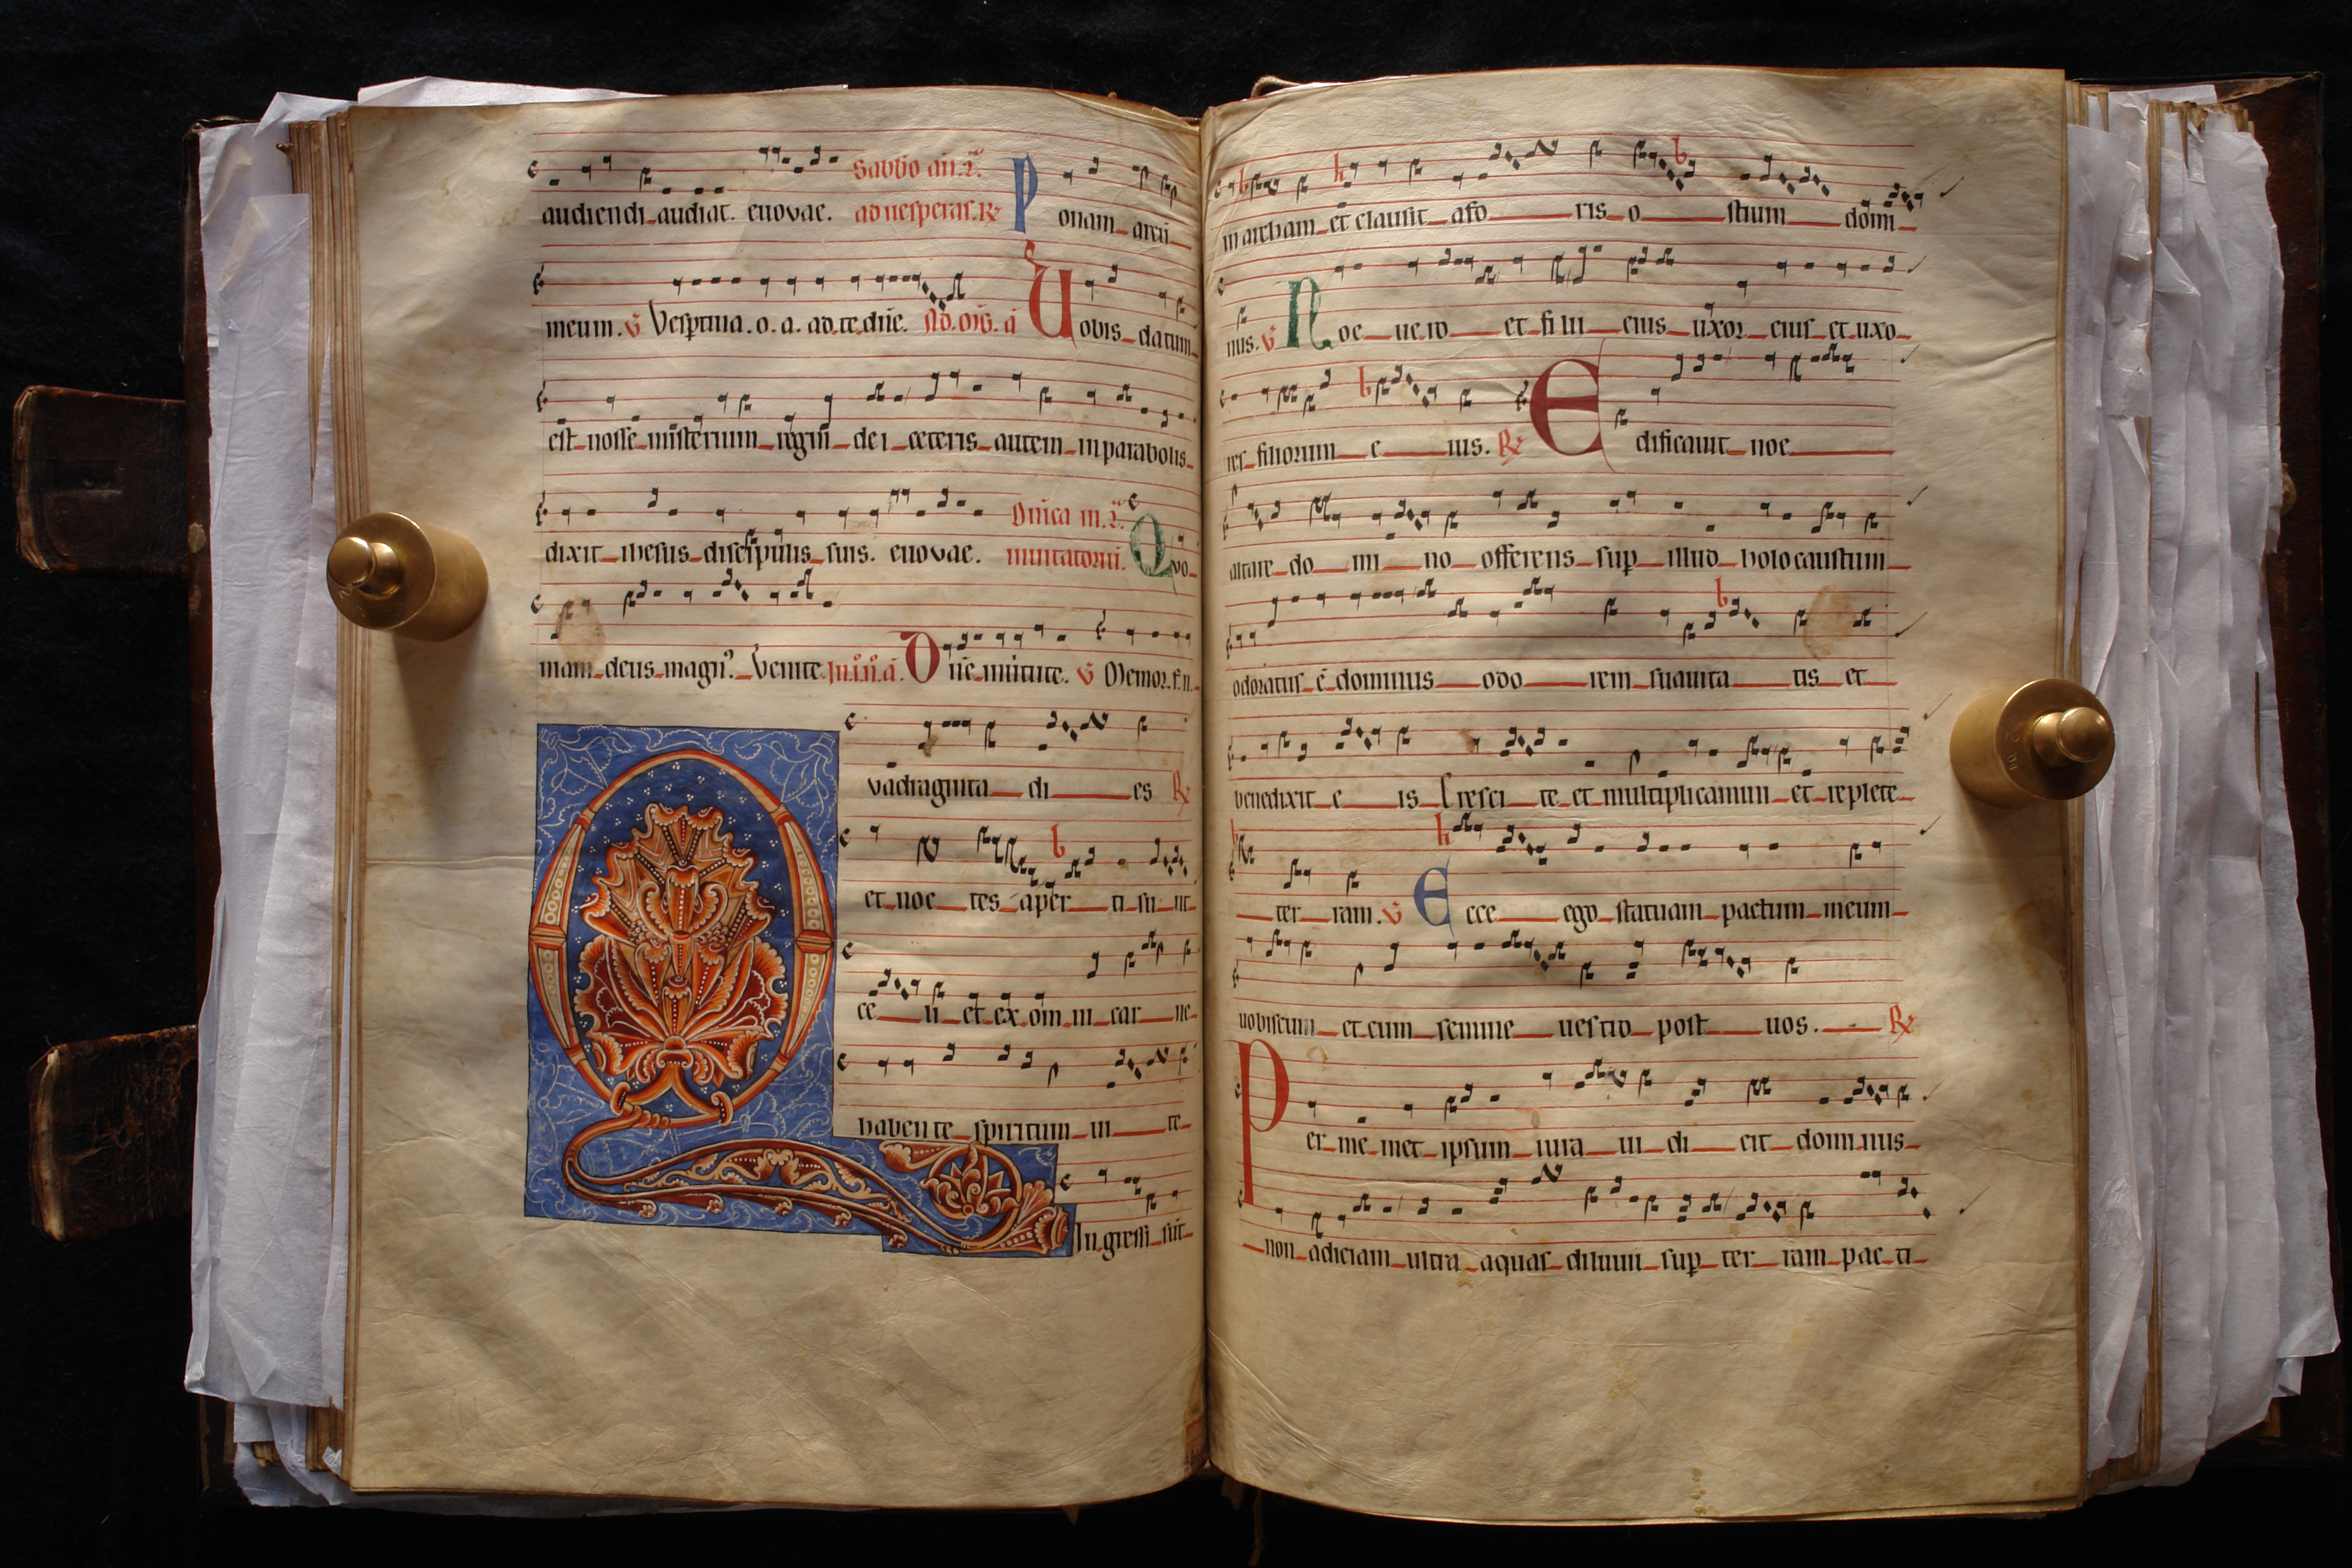 audiendi audiat. euovae. Sabbo an. ad uesperas. ℟ Ponam arcū
meum. ℣ Vesptina. o. a. ad te dn̄e. Uobis datum
est nosse misterium regni dei ceteris autem in parabolis
dixit ihesus discipulis suis. euovae. Dn̄ica inuitatoriū. Quo
niam deus magnꝰ. Venite. Dn̄e in uirtute. ℣ Memor. f. n.
Quadraginta di es ℟
et noc tes aper ti su nt
ce li et ex om̄ ni car ne
haben te spiritum ui te
Ingressi sūt
in archam et clausit afo ris o stium domi
nus. ℣ Noe uero et filii eius uxor eius et uxo
res filiorum e ius. ℟ Edificauit noe
altare do mi no offerens sup illud holocaustum
odoratus ē dominus odo rem suauita tis et
benedixit e is Cresci te et multiplicamini et replete
ter ram. ℣ Ecce ego statuam pactum meum
uobiscum et cum semine uestro post uos. ℟
Per me met ipsum iura ui di cit dominus
non adiciam ultra aquas diluuii sup ter ram pac ti